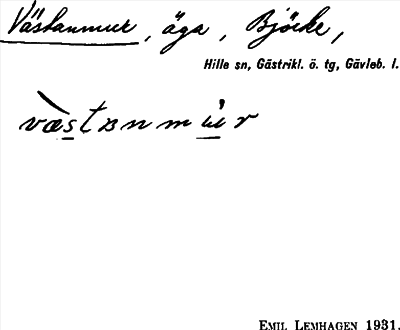 Västanmur, äga, Björke,
Hille sn, Gästrikl. ö. tg, Gävleb. l.
væ̀stʙnmu̇r
EMIL LEMHAGEN 1931.